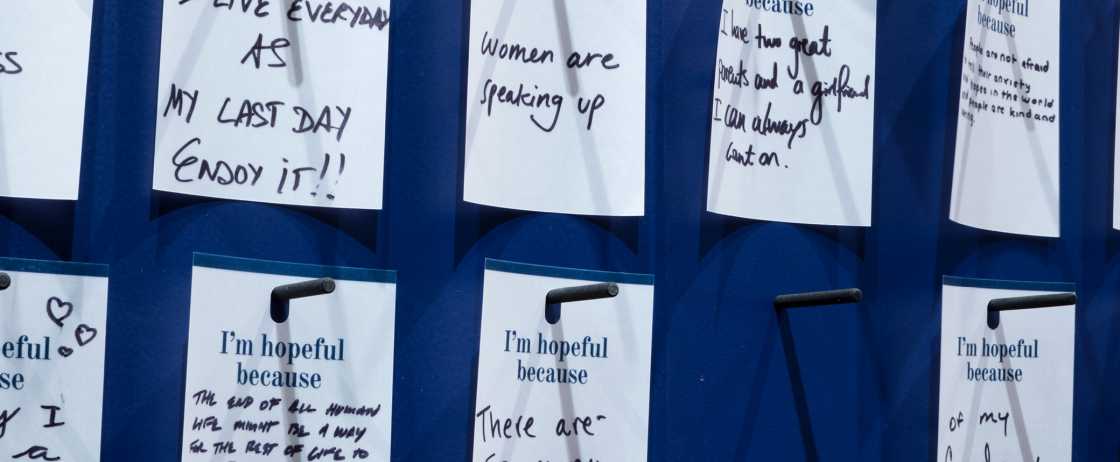 I LIVE EVERYDAY
AS
MY LAST DAY
ENJOY IT!!
Women are
speaking up
because
I have two great
parents and a girlfriend
I can always
count on.
hopeful
because
People are not afraid
their anxiety
hopes in the world
people are kind and
I
a
I'm hopeful
because
THE END OF ALL HUMAN
LIFE MIGHT BE A WAY
FOR THE REST OF LIFE TO
I'm hopeful
because
There are
I'm hopeful
because
of my